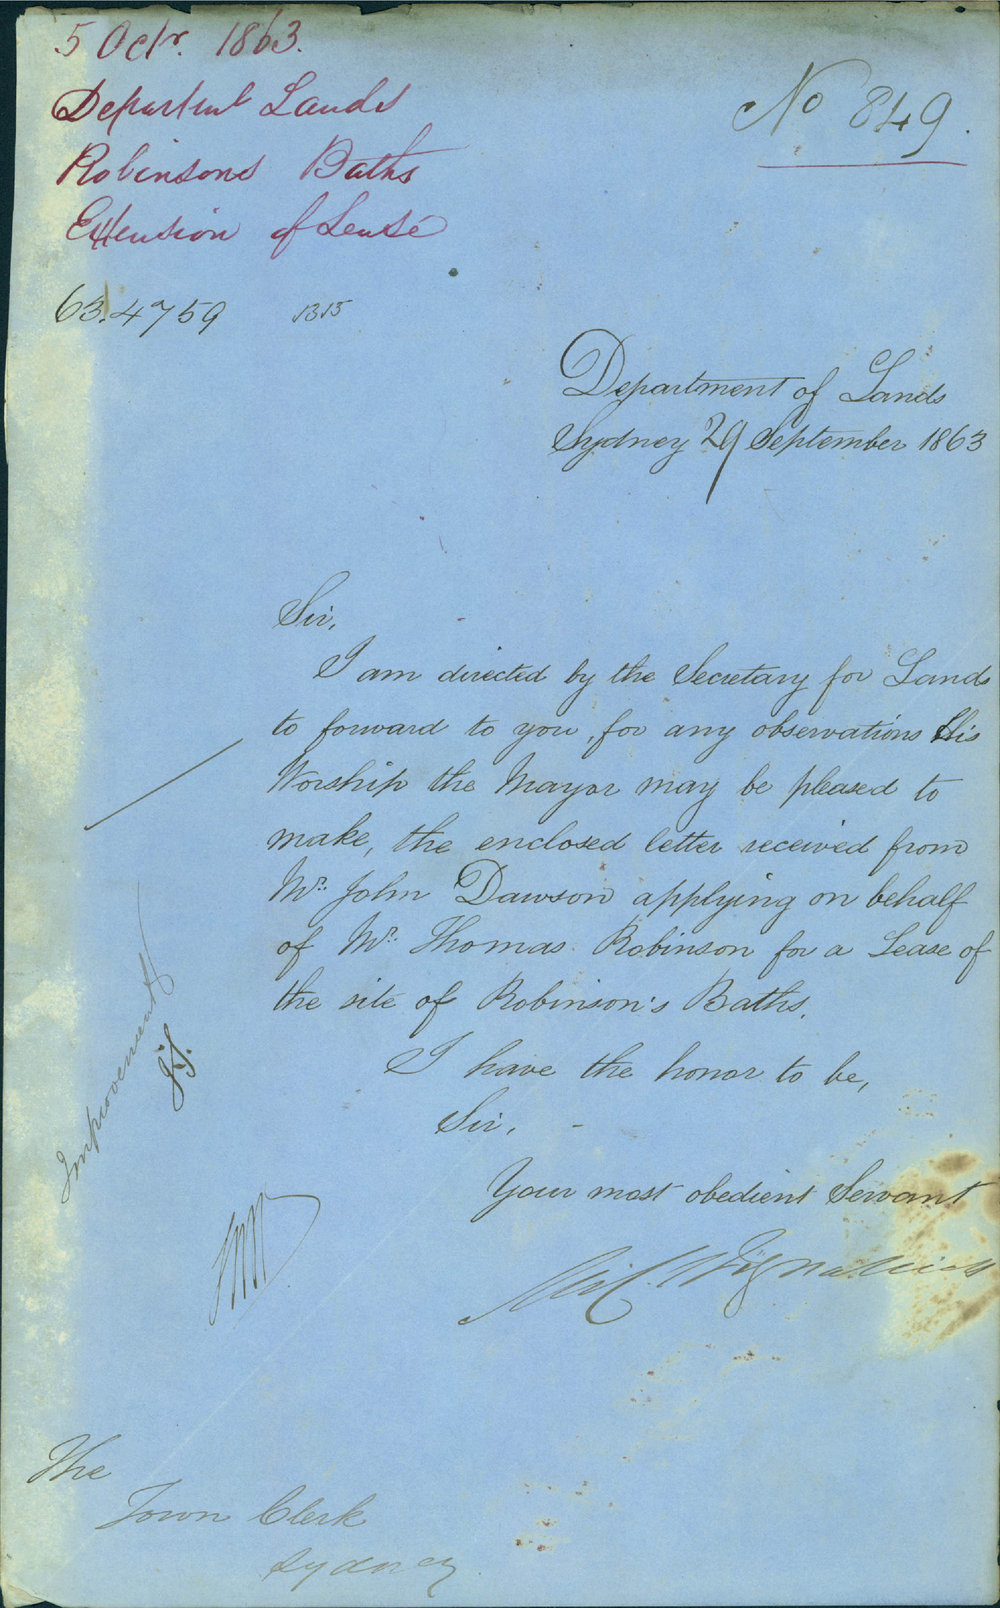 5 Octr. 1863.
Department Lands
Robinsons Baths
Extension of Lease
No 849.
63.4759 1315
Department of Lands
Sydney 29 September 1863
Sir,
I am directed by the Secretary for Lands
to forward to you, for any observations His
Worship the Mayor may be pleased to
make, the enclosed letter received from
Mr. John Dawson applying on behalf
of Mr. Thomas Robinson for a Lease of
the site of Robinson's Baths.
I have the honor to be,
Sir,
Your most obedient Servant
Improvements
The
Town Clerk
Sydney